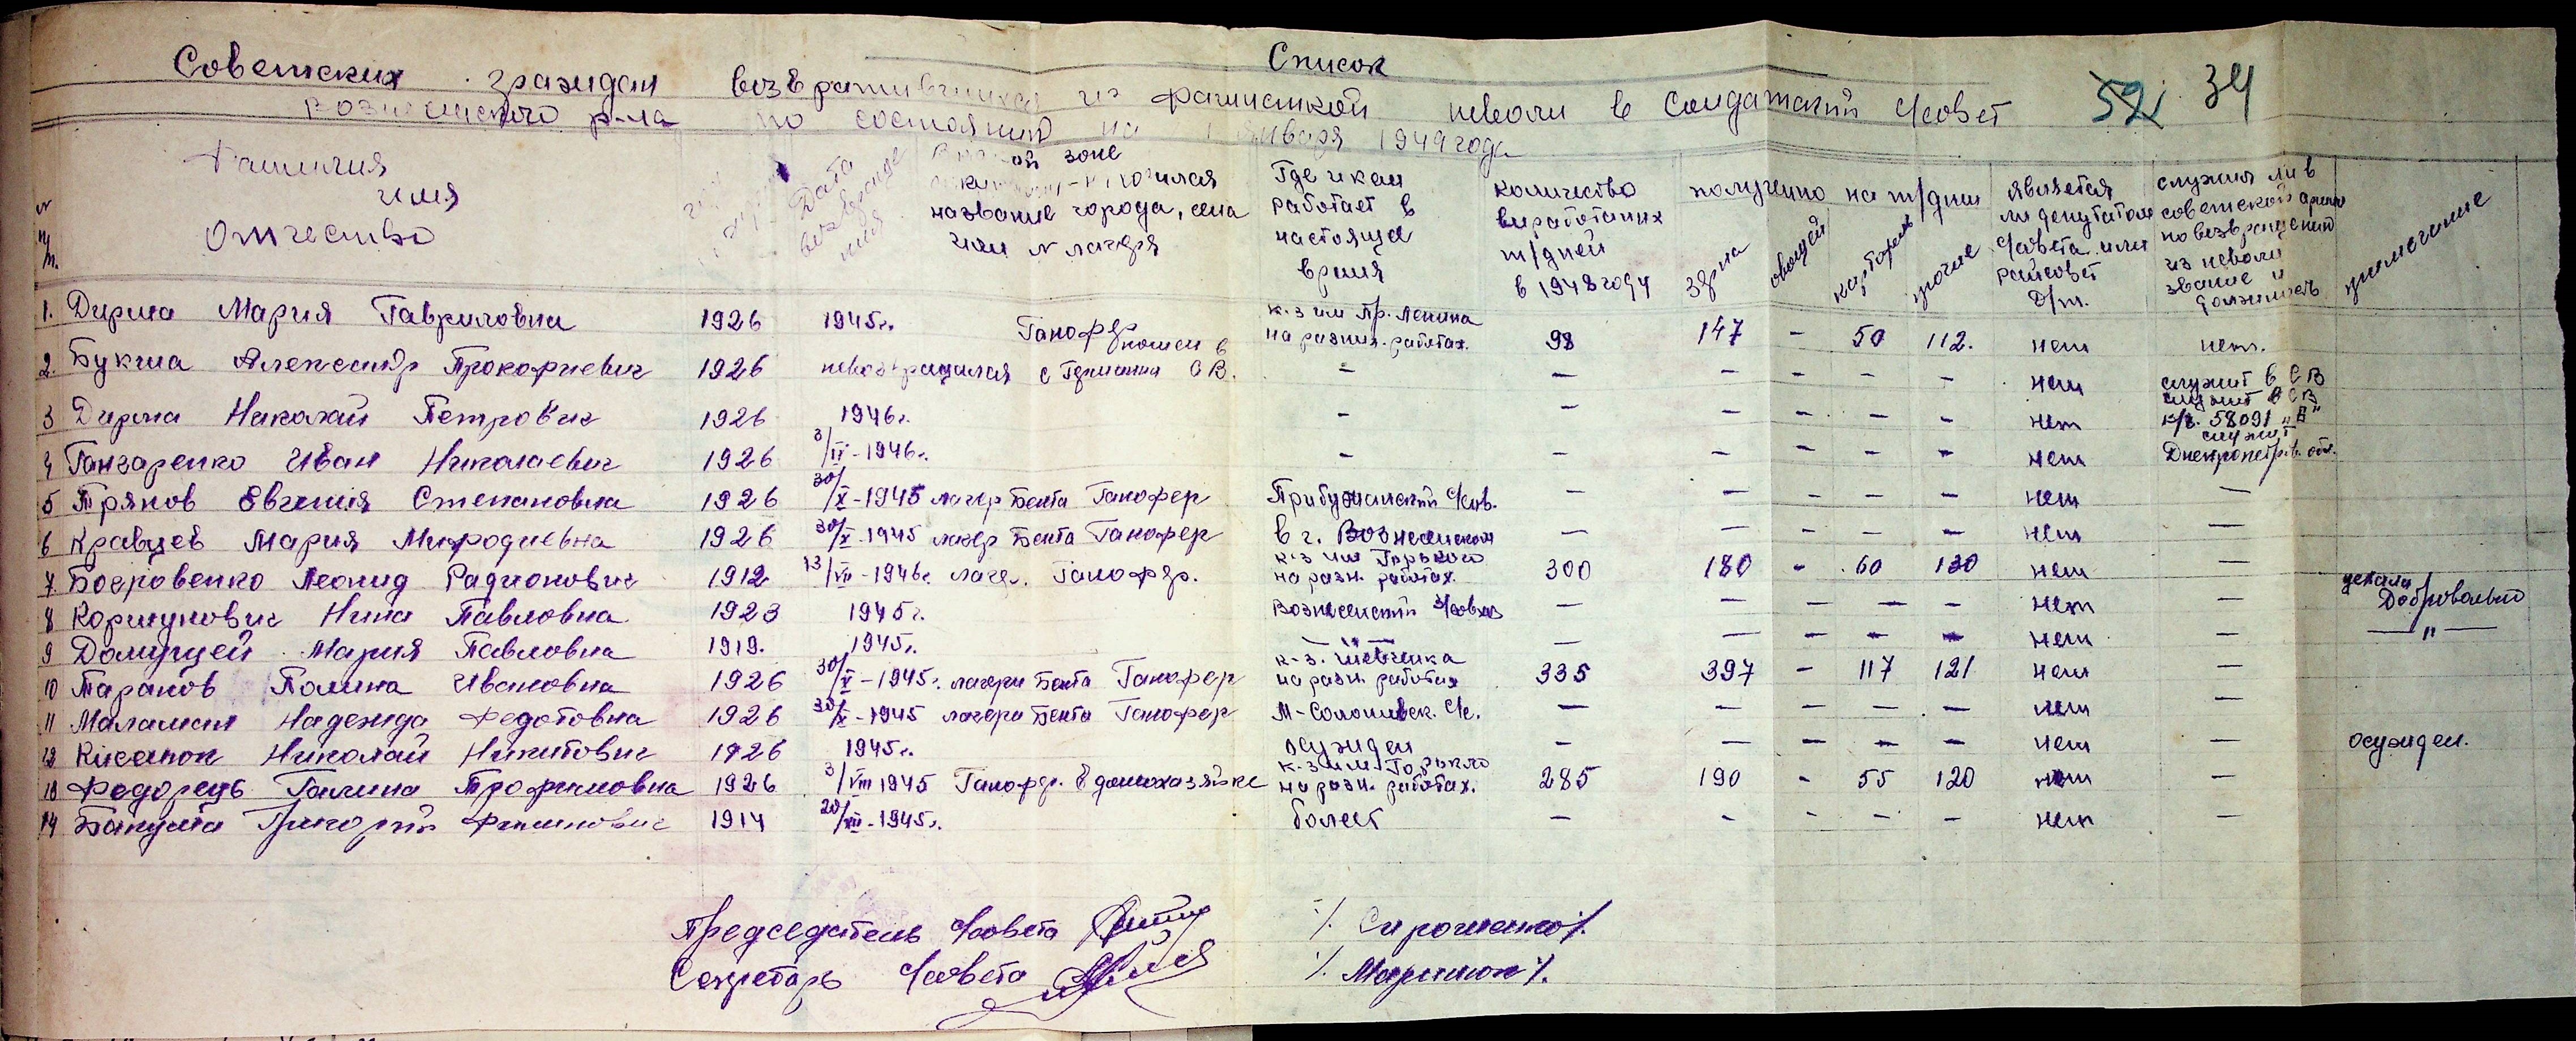 Список
Советских граждан возвратившихся из фашисткой неволи в Солдатский с/совет 52 34
Вознесенского р-на по состоянию на 1 января 1949 года
№ п/п. Фамилия имя Отчество
Дата возвращения
зоне
название города, села или № лагеря
Где и кем работает в настоящее время
количество выработаных т/дней в 1948 году
получено на т/дни
зерна овощей картофель прочие
является ли депутатом с/совета или райсовет д/т.
служил ли в советской армии по возвращению из неволи звание и должность
примечание
1. Дирма Мария Гавриловна 1926 1945г. Ганофер к-з им Пр. Ленина на разных работах. 98 147 - 50 112. нет нет.
2. Букша Александр Прокофиевич 1926 невозвращался с Германии СВ. - - - - - - нет служит в СВ
3 Дирма Николай Петрович 1926 1946г. - - - - - - нет служит в СВ п/я. 58091 "В"
4 Гончаренко Иван Николаевич 1926 3/II-1946г. - - - - - - нет служит Днепропетров. обл.
5 Тряков Евгения Степановна 1926 30/X-1945 лагер Бента Ганофер Прибужанский с/сов. - - - - - нет -
6 Кравцев Мария Мифодиевна 1926 30/X-1945 лагер Бента Ганофер в г. Вознесенском - - - - - нет -
7. Бобровенко Леонид Радионович 1912 13/VII-1946г. лагер. Ганофер. к-з им Горького на разн. работах. 300 180 - 60 130 нет -
8 Коршунович Нина Павловна 1923 1945г. Вознесенский с/совхоз - - - - - нет - уехала Добровольно
9 Домущей Мария Павловна 1919. 1945г. - " - - - - - - нет - - " -
10 Таранов Полина Ивановна 1926 30/X-1945г. лагери Бента Ганофер к-з. Шевченка на разн. работах 335 397 - 117 121 нет -
11 Маламен Надежда Федотовна 1926 30/X-1945 лагери Бента Ганофер М-Солонивск. с/с. - - - - - нет -
12 Николай Никитович 1926 1945г. осужден - - - - - нет - осужден.
13 Федорець Галина Трофимовна 1926 3/VIII 1945 Ганофер. в домохазяйке к-з им. Горького на разн. работах. 285 190 - 55 120 нет -
14 Бакума Григорий 1914 20/XII-1945г. болеет - - - - - нет -
Председатель с/совета /. Сироженко /.
Секретарь с/совета /. Маринюк /.